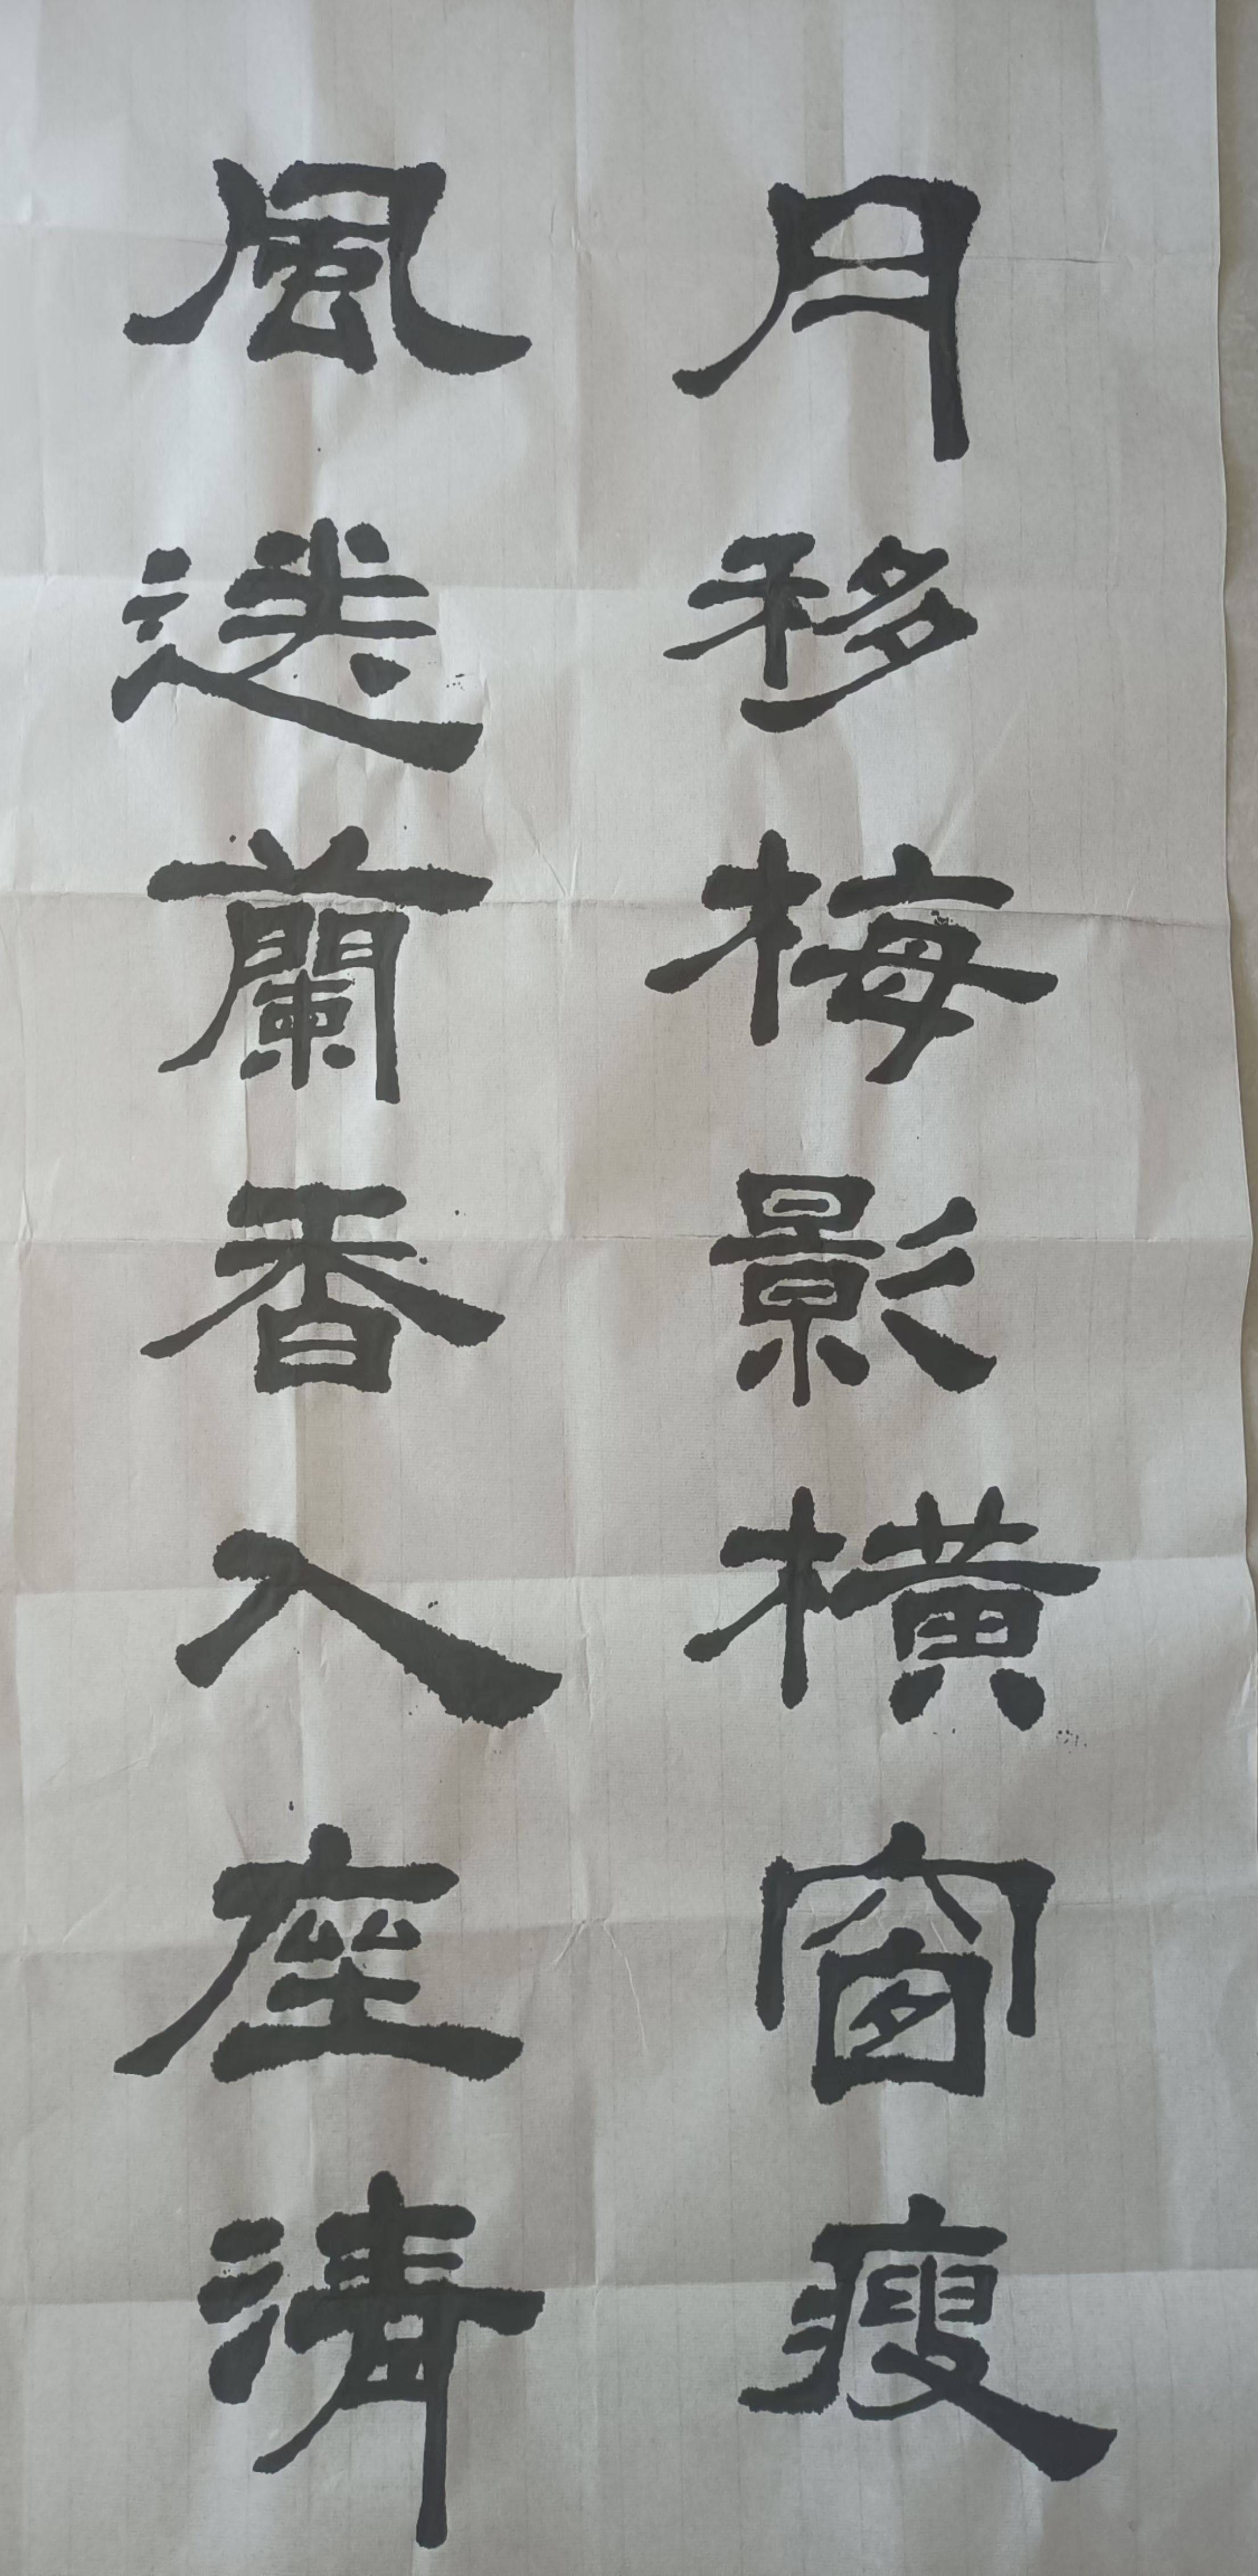 月移梅影橫窗瘦
風送蘭香入座清